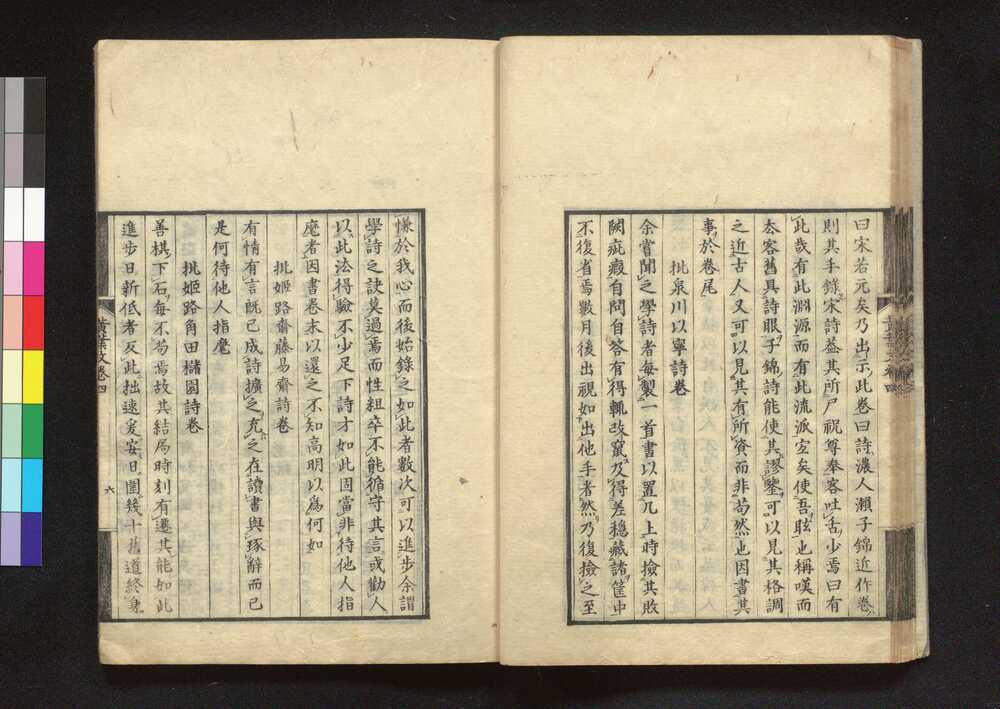 曰宋若元矣乃出示此卷曰詩濃人瀨子錦近作卷
則其手錄宋詩蓋其所尸祝尊奉客吐舌少焉曰有
此哉有此淵源而有此流派宜矣使吾眩也稱嘆而
去客舊具詩眼子錦詩能使其謬鑒可以見其格調
之近古人又可以見其有所資而非苟然也因書其
事於卷尾
批泉川以寧詩卷
余嘗聞之學詩者每製一首書以置几上時撿其敗
闕疵瑕自問自答有得輒改竄及得差穩藏諸筐中
不復省焉數月後出視如出他手者然乃復撿之至
慊於我心而後始錄之如此者數次可以進步余謂
學詩之訣莫過焉而性粗卒不能循守其言或勸人
以此法得驗不少足下詩才如此固當非待他人指
麾者因書卷末以還之不知高明以爲何如
批姬路齋藤易齋詩卷
有情有言既已成詩擴之充之在讀書與琢辭而已
是何待他人指麾
批姬路角田櫧園詩卷
善棋下石每不苟焉故其結局時刻有遷其能如此
進步日新低者反此拙速爰安日圍幾十舊道終身
黃葉文卷四
六